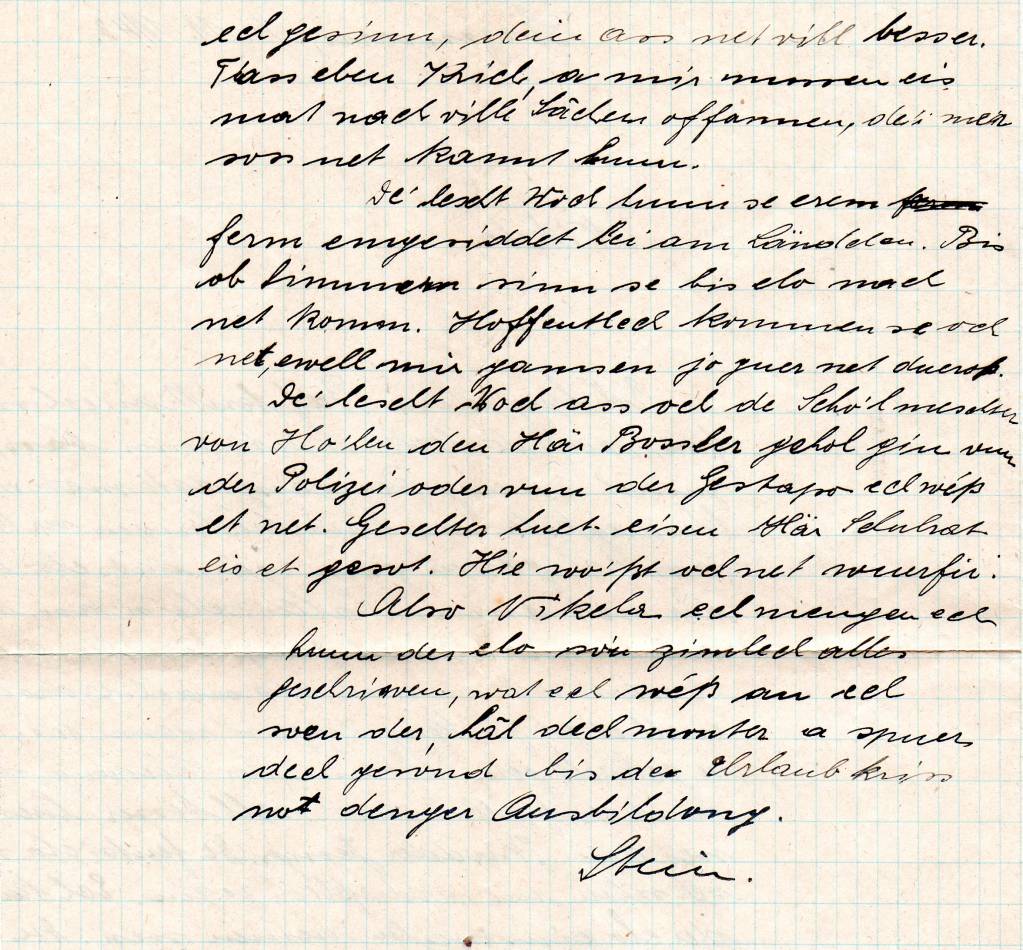 ech gesinn, deen ass net vill besser.
T'ass eben Krich, a mir mussen eis
mat nach ville Sâchen offannen, dei mer
soss net kannt hunn.
Dé lescht Woch hunn se erem
ferm emgeriddet bei am Ländchen. Bis
ob Simmern sinn se bis elo nach
net komm. Hoffentlech kommen se och
net, ewell mir gamsen jo guer net duerop.
Dé lescht Woch ass och de Schólmeschter
von Hólen den Här Bossler gehol gin vun
der Polizei oder vun der Gestapo ech wéß
et net. Geschter huet eisen Här Schulrat
eis et gesot. Hie wóßt och net wuerfir.
Also Nikela ech mengen ech
hunn der elo son zimlech alles
geschriwen, wat ech wéß an ech
soen der, hâl dech monter a spuer
dech gesond bis de Urlaub kriss
not denger Ausbildong.
Stein.